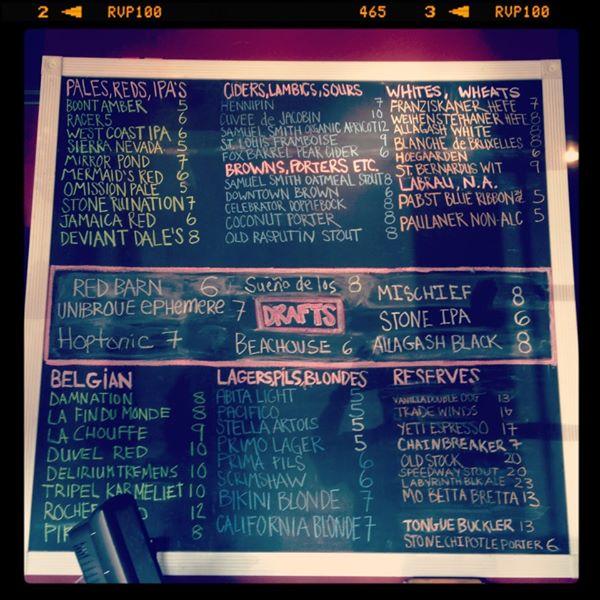 2 RVP100 465 3 RVP100
PALES, REDS, IPA'S
BOONT AMBER 5
RACER 5 6
WEST COAST IPA 6
SIERRA NEVADA 5
MIRROR POND 7
MERMAID'S RED 6
OMISSION PALE 5
STONE RUINATION 7
JAMAICA RED 6
DEVIANT DALE'S 8
CIDERS, LAMBICS, SOURS
HENNIPIN 7
CUVEE de JACOBIN 10
SAMUEL SMITH ORGANIC APRICOT 12
ST. LOUIS FRAMBOISE 9
FOX BARREL PEAR CIDER 6
BROWNS, PORTERS ETC
SAMUEL SMITH OATMEAL STOUT 8
DOWNTOWN BROWN 6
CELEBRATOR DOPPLEBOCK 8
COCONUT PORTER 6
OLD RASPUTIN STOUT 8
WHITES, WHEATS
FRANZISKANER HEFE 7
WEIHENSTEPHANER HEFE 8
ALLAGASH WHITE 8
BLANCHE de BRUXELLES 8
HOEGAARDEN 6
ST. BERNARDUS WIT 9
LABEAU, N.A.
PABST BLUE RIBBON 5
PAULANER NON-ALC 5
RED BARN 6
UNIBROUE EPHEMERE 7
Hoptonic 7
Sueño de los 8
DRAFTS
BEACHOUSE 6
MISCHIEF 8
STONE IPA 6
ALLAGASH BLACK 8
BELGIAN
DAMNATION 8
LA FIN DU MONDE 8
LA CHOUFFE 9
DUVEL RED 10
DELIRIUM TREMENS 10
TRIPEL KARMELIET 10
12
8
LAGERS, PILS, BLONDES
ABITA LIGHT 5
PACIFICO 5
STELLA ARTOIS 5
PRIMO LAGER 5
PRIMA PILS 6
SCRIMSHAW 6
BIKINI BLONDE 7
CALIFORNIA BLONDE 7
RESERVES
VANILLA DOUBLE DOG 13
TRADE WINDS 16
YETI ESPRESSO 17
CHAINBREAKER 7
OLD STOCK 20
SPEEDWAY STOUT 20
LABYRINTH BLK ALE 23
MO BETTA BRETTA 13
TONGUE BUCKLER 13
STONE CHIPOTLE PORTER 6